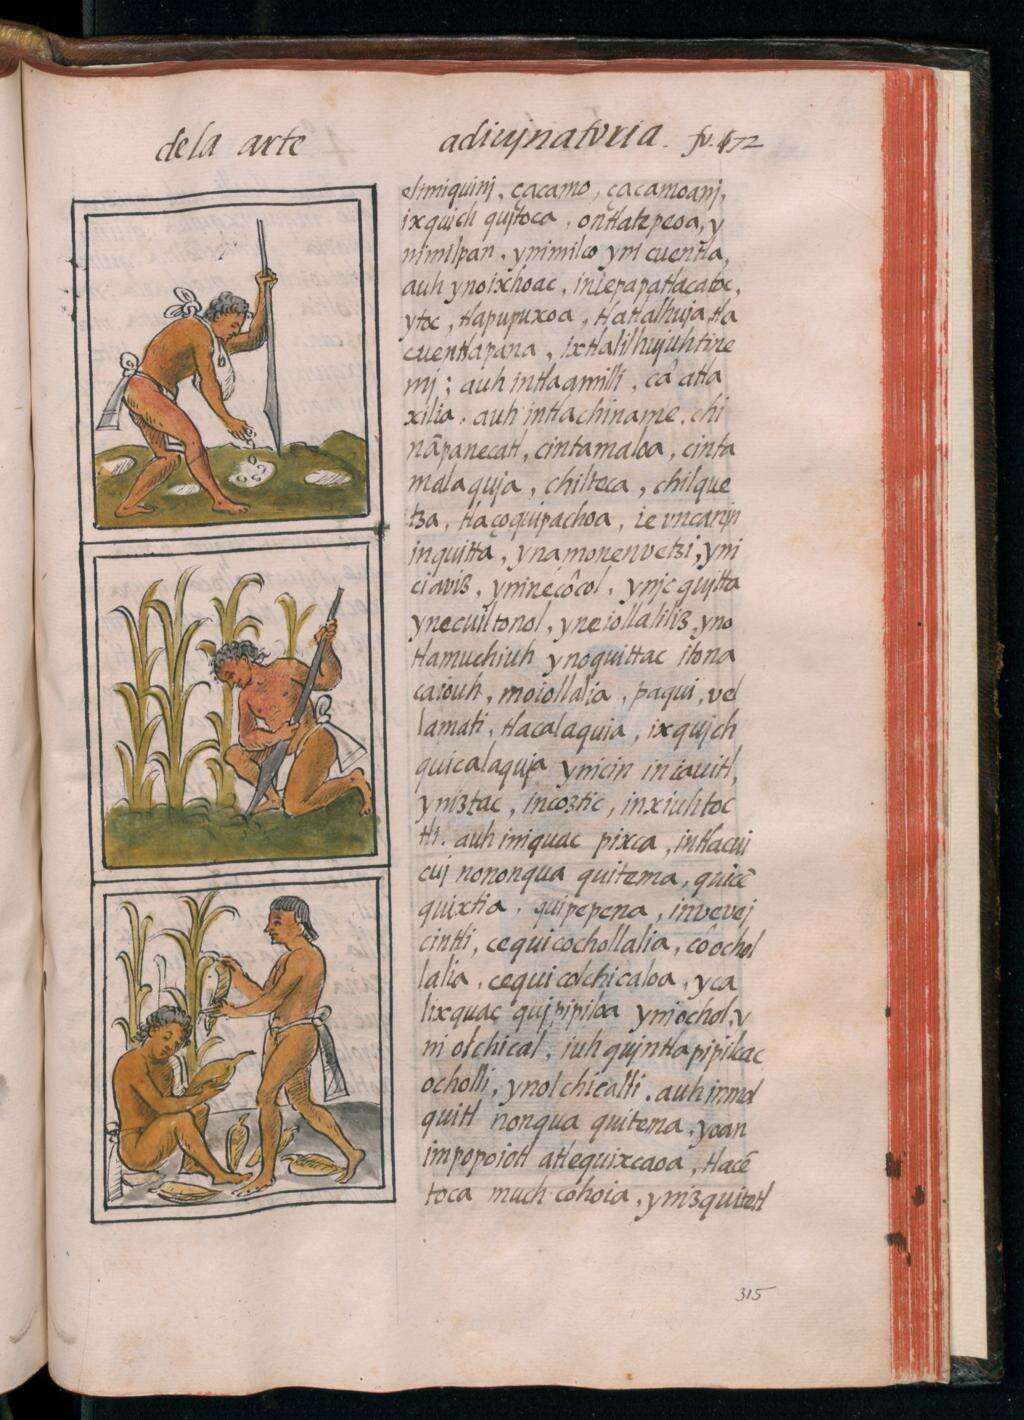 dela arte adiujnaturia. fo. 72
elimiquinj, çacamo, çacamoanj,
ixquich qujtoca, ontlatepeoa, y
nimilpan, ynimilco yni cuentla,
auh ynoixhoac,
ytoc, tlapupuxoa, tlatalhuja, tla
cuentlapana, ixtlalilhujuhtine
mj; auh intlaamilli, ca atla
xilia, auh intlachiname, chi
nãpanecatl, cintamaloa, cinta
malaquja, chilteca, chilque
tza, tlaçoquipachoa, ie vncanjn
inquitta, ynamonenvetzi, yni
ciaviz, yninecôcol, ynjc qujtta
ynecuiltonol, yneiollaliliz, yno
tlamuchiuh ynoquittac itona
caiouh, moiollalia, paqui, vel
lamati, tlacalaquia, ixqujch
quicalaquja ynicin incauitl,
yniztac, incoztic, inxiuhtoc
tli. auh iniquac pixca, intlacui
cuj nononqua quitema, quicê
quixtia, quipepena, invevej
cintli, cequicochollalia, côochol
lalia, cequicolchicaloa, yca
lixquac qujpipiloa yniochol, y
ni olchical, iuh qujntlapipilcac
ocholli, ynolchicalli. auh inmol
quitl nonqua quitema, yoan
inpopoiotl atlequixcaoa, tlacê
toca much cohoia, ynizquitetl
315